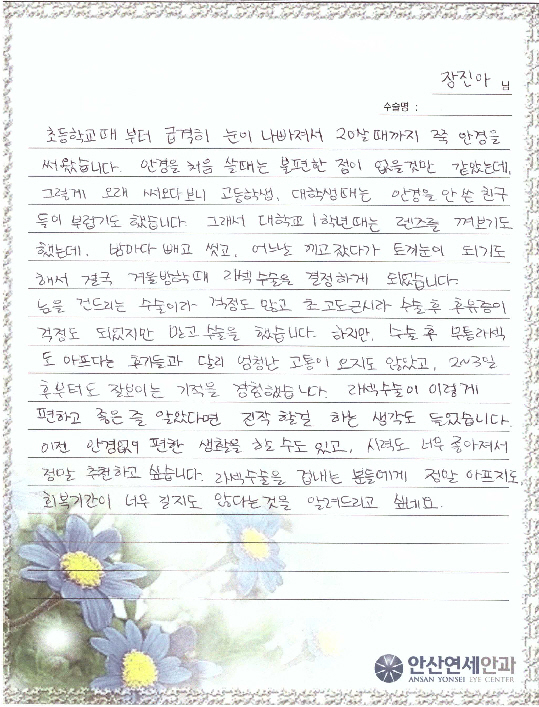 장진아 님
수술명 :
초등학교때 부터 급격히 눈이 나빠져서 20살때까지 쭉 안경을
써왔습니다. 안경을 처음 쓸때는 불편한 점이 없을것만 같았는데,
그렇게 오래 써오다보니 고등학생, 대학생때는 안경을 안 쓴 친구
들이 부럽기도 했습니다. 그래서 대학교 1학년때는 렌즈를 껴보기도
했는데. 밤마다 빼고 씻고, 어느날 끼고 잤다가 토끼눈이 되기도
해서 결국 겨울방학때 라섹수술을 결정하게 되었습니다.
눈을 건드리는 수술이라 걱정도 많고 초고도근시라 수술후 후유증이
걱정도 되었지만 믿고 수술을 했습니다. 하지만, 수술후 무통라섹
도 아프다는 후기들과 달리 엄청난 고통이 오지도 않았고, 2~3일
후부터도 잘보이는 기적을 경험했습니다. 라섹수술이 이렇게
편하고 좋은 줄 알았다면 진작 할걸 하는 생각도 들었습니다.
이젠 안경없이 편한 생활을 할 수도 있고, 시력도 너무 좋아져서
정말 추천하고 싶습니다. 라섹수술을 겁내는 분들에게 정말 아프지도,
회복기간이 너무 길지도 않다는것을 알려드리고 싶네요.
안산연세안과
ANSAN YONSEI EYE CENTER